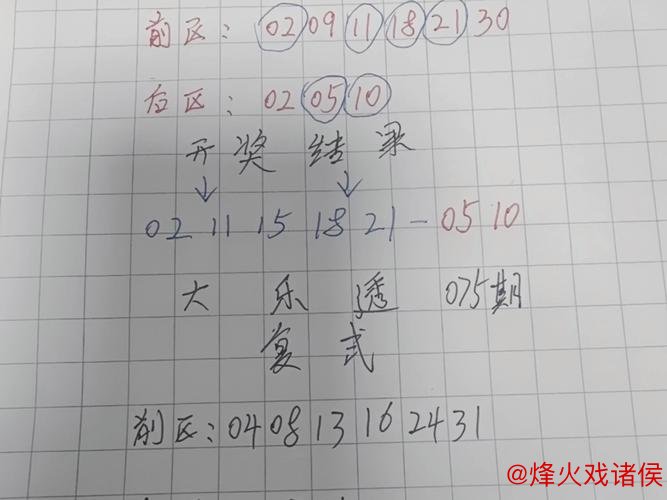 前区：02 09 11 18 21 30
后区：02 05 10
开奖结果
↓ ↓
02 11 15 18 21-05 10
大乐透 075期
复式
前区：04 08 13 16 24 31
@烽火戏诸侯